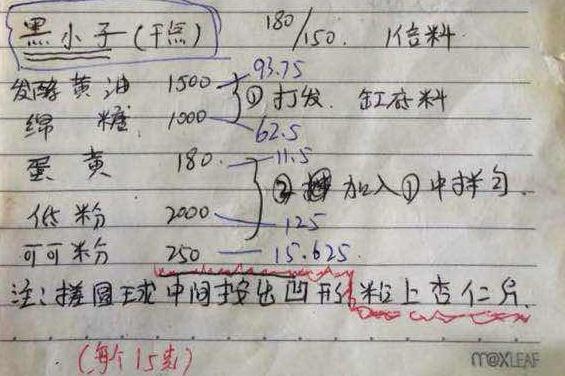 黑小子(干点) 180/150. 1倍料
发酵黄油 1500 93.75
绵糖 1000 62.5 ①打发. 缸底料
蛋黄 180. 11.5
②加入①中拌匀.
低粉 2000 125
可可粉 250 15.625
注:搓圆球中间按出凹形粘上杏仁片.
(每个15克)
m@XLEAF